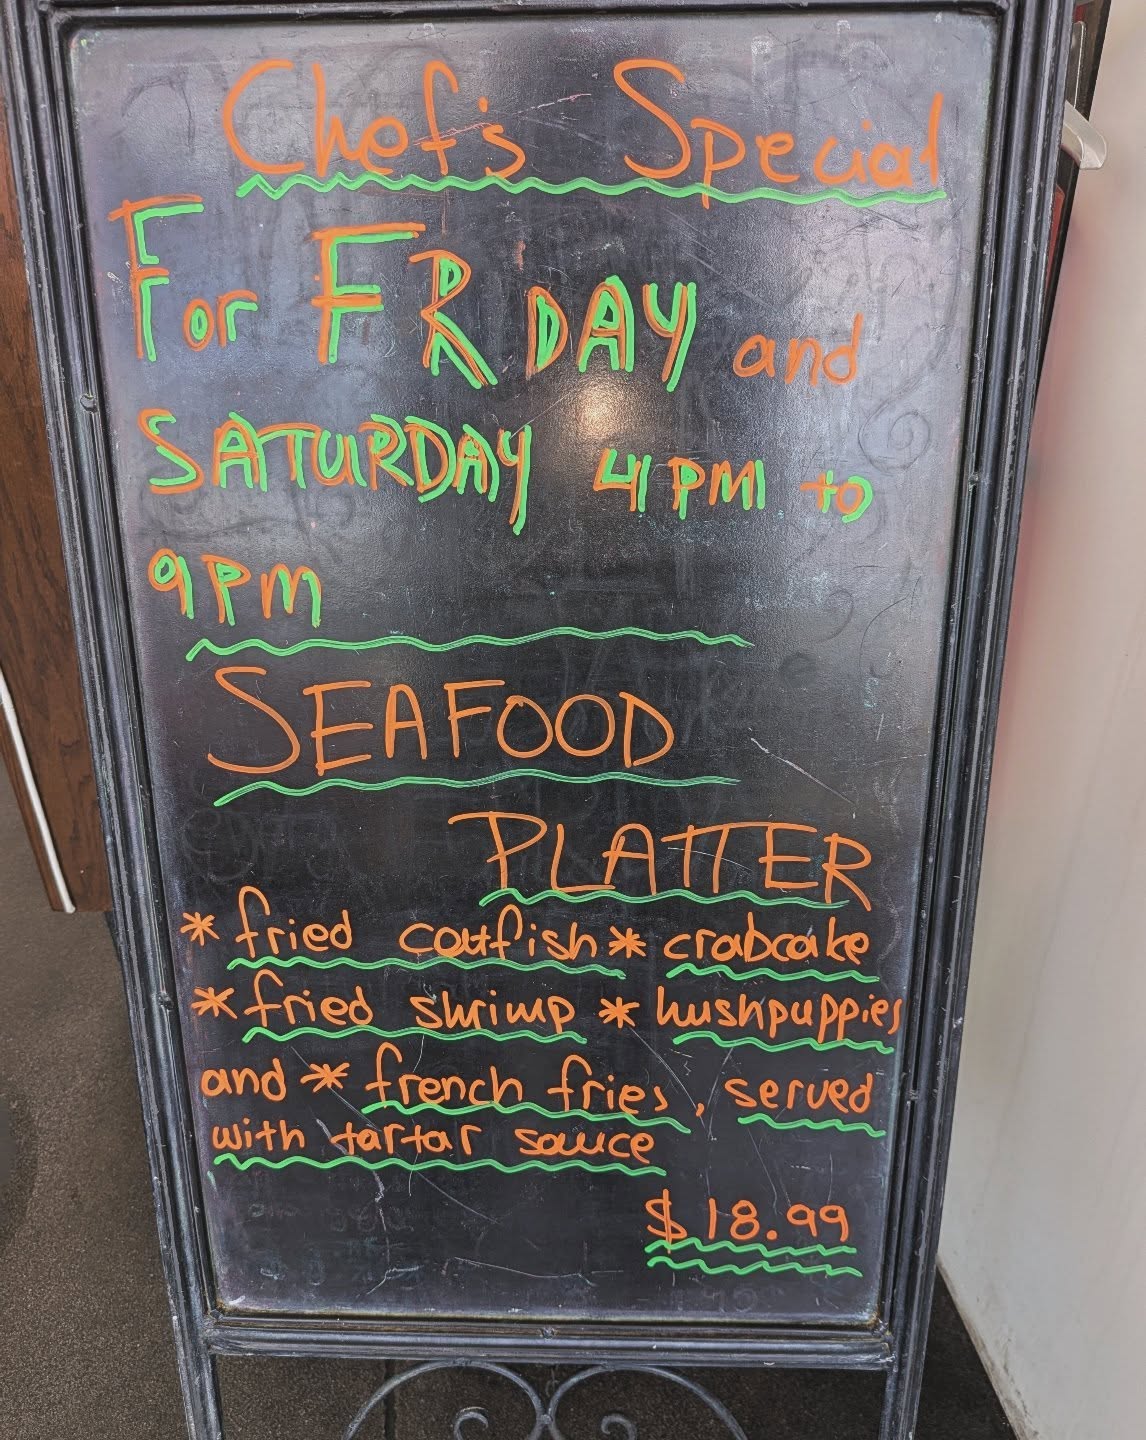 Chef's Special
For FRDAY and
SATURDAY 4PM to
9PM
SEAFOOD
PLATTER
* fried catfish * crabcake
* fried shrimp * hushpuppies
and * french fries, served
with tartar sauce
$18.99